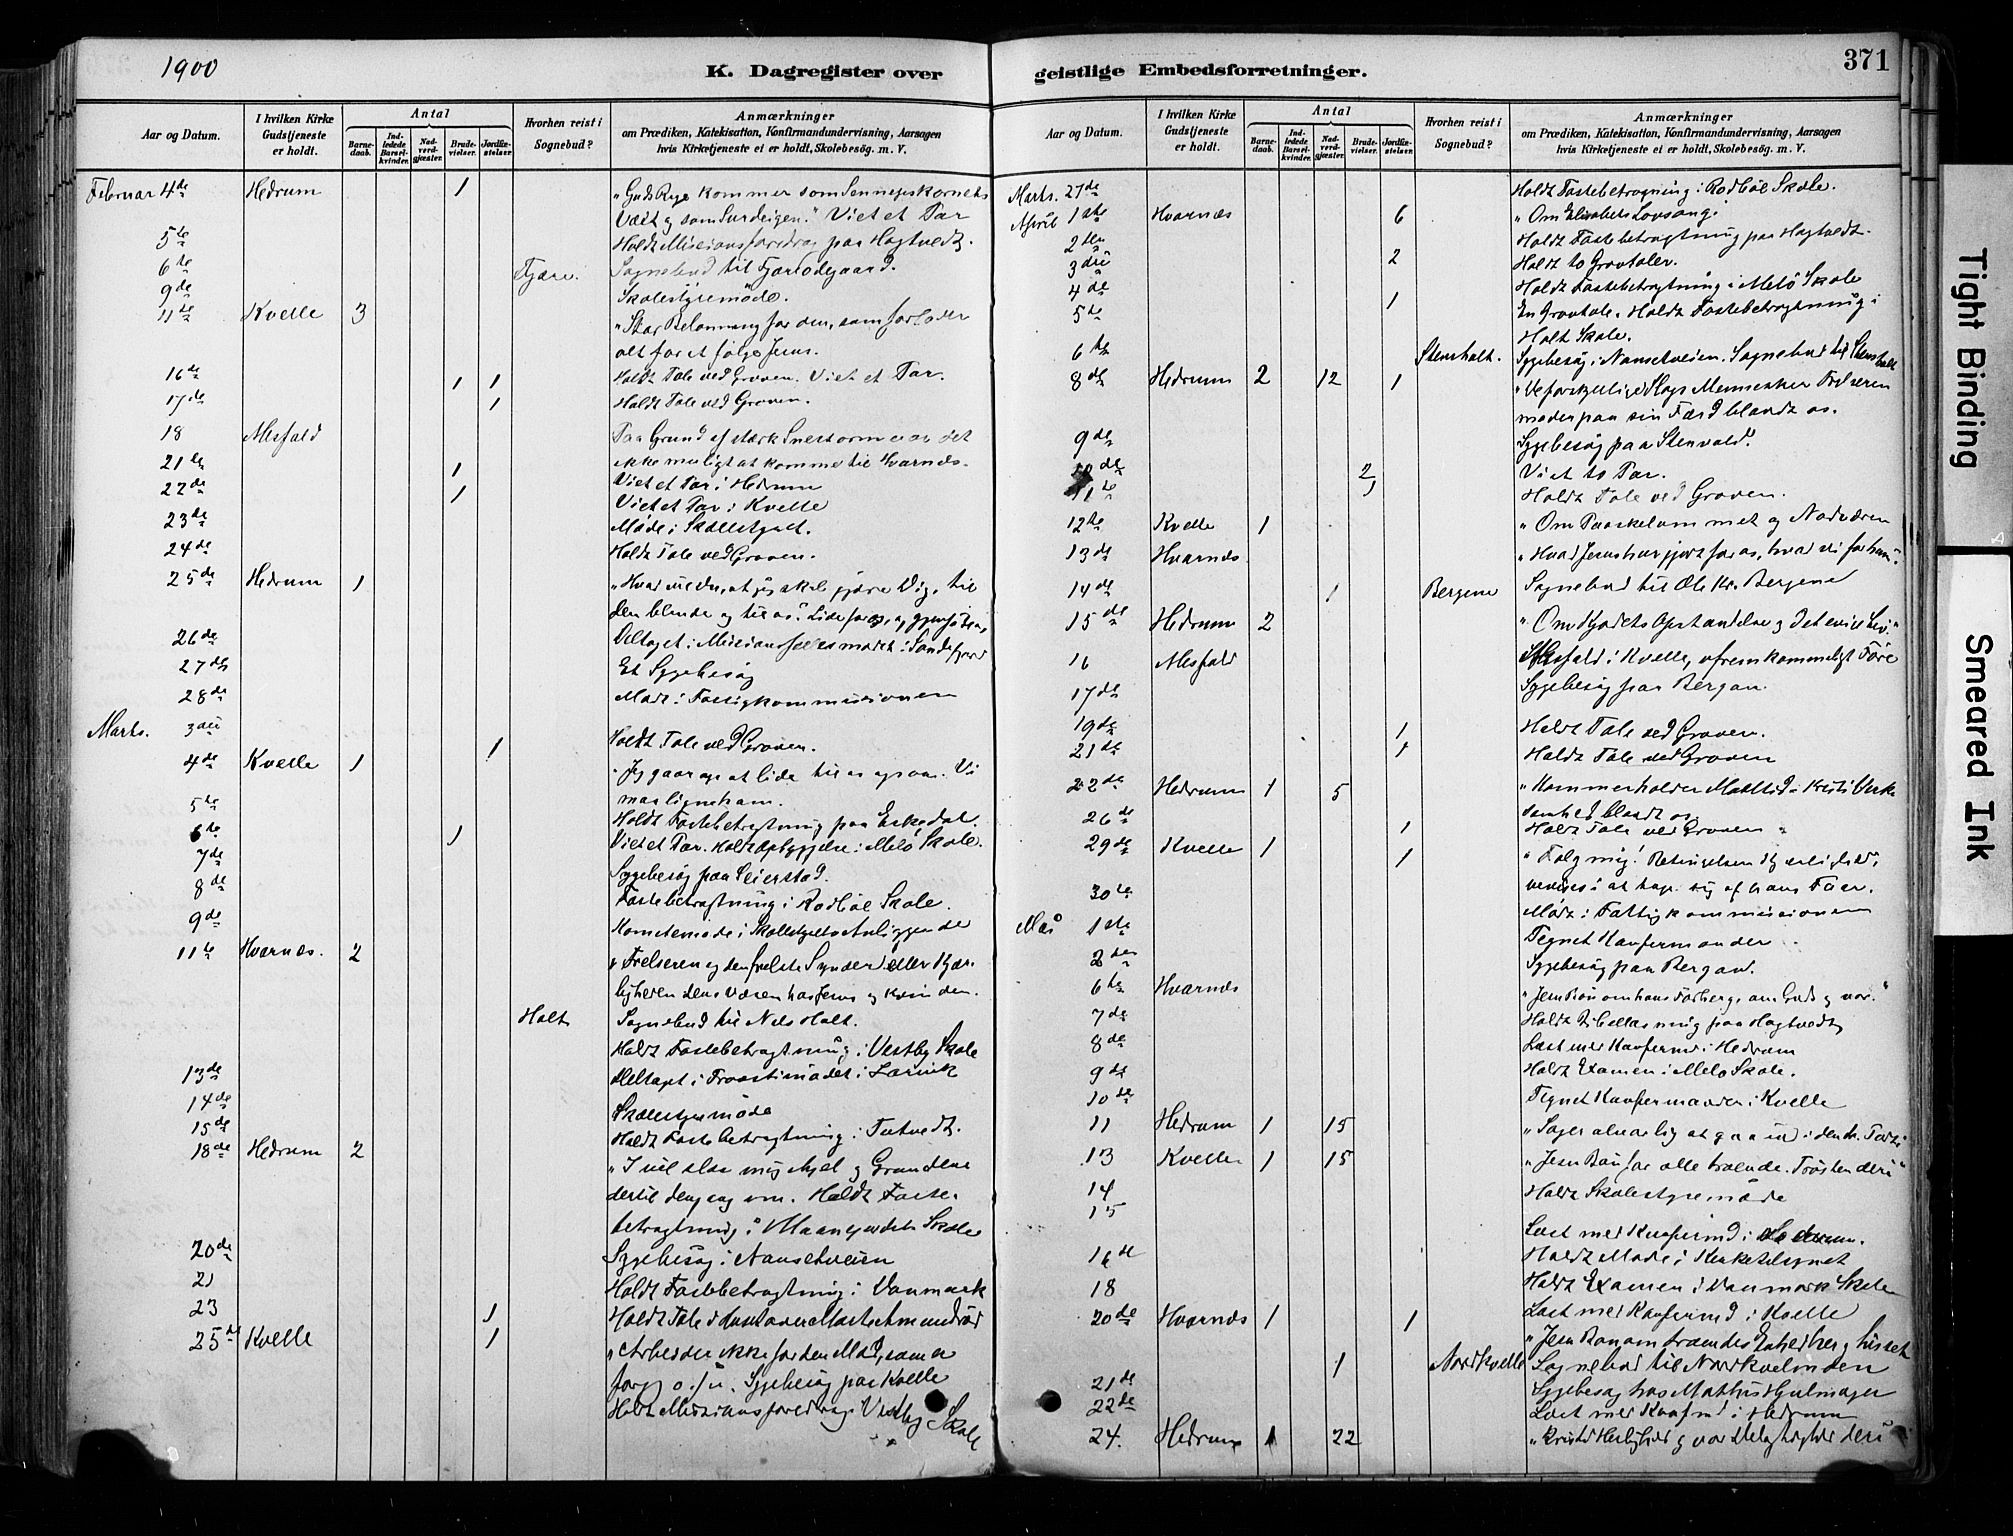 1900
K. Dagregister over
Aar og Datum.
I hvilken Kirke Gudstjeneste er holdt.
Antal
Barnedaab.
Indledede Barselkvinder.
Nadverdgjæster.
Brudevielser.
Jordfæstelser.
Hvorhen reist i Sognebud?
Anmærkninger
om Prædiken, Katekisation, Konfirmandundervisning, Aarsagen hvis Kirketjeneste ei er holdt, Skolebesög. m. V.
Februar 4de Hedrum 1 "Guds Rige kommer som Sennepskornets
Vext og som Surdeigen." Viet et Par
5te Holdt Missionsforedrag paa Hagtvedt.
6te Sognebud til
9de Skolestyremöde.
11de Kvelle 3 "Stor Belønning for dem, som forlader
alt for at følge Jesus.
16de 1 1 Holdt Tale ved Graven. Viet et Par.
17de 1 Holdt Tale ved Graven.
18 Mesfald Paa Grund af stærk Snestorm var det
ikke muligt at komme til Hvarnes.
21de 1 Viet et Par i Hedrum
22de 1 Viet et Par i Kvelle
23de Møde i
24de Holdt Tale ved Graven.
25de Hedrum 1 "Hvad vil du, at jeg skal gjøre Dig, til
den blinde og til os."
26de Deltaget i
27de Et Sygebesøg
28de Møde i Fattigkommissionen
Marts. 3die Holdt Tale ved Graven.
4de Kvelle 1 1 Jeg gaar op at lide
maa ligne ham.
5te Holdt Fastebetragtning paa Eskedal.
6te 1 Viet et Par. Holdt Opbyggelse i Melö Skole.
7de Sygebesøg paa Seierstad.
8de Fastebetragtning i Rødbøl Skole.
9de
11te Hvarnes. 2 "Frelseren og den frelste Synder
Holt Sognebud til Nils Holt.
Holdt Fastebetragtning i Vestby Skole
13de Deltaget i Provstimødet i Larvik
14de Skolestyremøde
15de Holdt Fastebetragtning i
18de Hedrum 2 "I vil slaa mig ihjel og Grundene
dertil dengang om. Holdt Faste-
betragtning i Skole
20de Sygebesøg i Nansetveien
21 Holdt Fastebetragtning i Vanmark
23 1 Holdt Tale
25de Kvelle 1 "Arbeider ikke for den Mad, som er
Sygebesøg paa Kvelle
Holdt Missionsforedrag i Vestby Skole
geistlige Embedsforretninger.
371
Aar og Datum.
I hvilken Kirke Gudstjeneste er holdt.
Antal
Barnedaab.
Indledede Barselkvinder.
Nadverdgjæster.
Brudevielser.
Jordfæstelser.
Hvorhen reist i Sognebud?
Anmærkninger
om Prædiken, Katekisation, Konfirmandundervisning, Aarsagen hvis Kirketjeneste ei er holdt, Skolebesög. m. V.
Marts. 27de Holdt Fastebetragtning i Rødbøl Skole.
April 1ste Hvarnes 6 "Om Elisabets Lovsang."
2den Holdt Fastebetragtning paa Hagtvedt.
3die 2 Holdt to Gravtaler.
4de Holdt Fastebetragtning i Melö Skole
5de 1 En Gravtale. Holdt Fastebetragtning i
Holt Skole.
6te Stensholt. Sygebesøg i Nansetveien. Sognebud til Stensholt
8de Hedrum 2 12 1 "De forskjellige Slags Mennesker Frelseren
møder paa sin Færd blandt os.
9de Sygebesøg paa Stenvald.
10de 2 Viet to Par.
11te 1 Holdt Tale ved Graven.
12te Kvelle 1 "Om Paaskelammet og Nadveren
13de Hvarnes "Hvad Jesus har gjort for os, hvad vi for ham".
14de 1 Bergene Sognebud til Ole Kr. Bergene
15de Hedrum 2 "Om Kjødets Opstandelse og det evige Liv."
16 Mesfald Mesfald i Kvelle, ufremkommeligt Føre
17de Sygebesøg paa Bergan.
19de 1 Holdt Tale ved Graven.
21de 1 Holdt Tale ved Graven
22de Hedrum 1 5 "Kommer holder Maaltid - Kristi Virk-
somhed blandt os
26de 1 Holdt Tale ved Graven
29de Kvelle 1 1 "Følg mig! Betingelsen Kjærlighed,
30te Møde i Fattigkommissionen
Mai 1ste Tegnet Konfirmander
2den Sygebesøg paa Bergan.
6te Hvarnes "Jesu Bøn om hans
7de Holdt Bibellæsning paa Hagtvedt
8de Læst med Konfirmd i Hedrum
9de Holdt Examen i Melö Skole.
10de Tegnet Konfirmander i Kvelle
11 Hedrum 1 15 "Søger alvorlig at gaa ind i
13 Kvelle 1 15 "Jesu Bøn for alle troende. Trøsten deri"
14 Holdt Skolestyremøde
15 Læst med Konfirmd i Hedrum.
16de Holdt Møde i Kirketilsynet
18 Holdt Examen i Vanmark Skole
Læst med Konfirmd i Kvelle
20de Hvarnes 1 1 "Jesu Bøn om troendes Enhed her og hisset
1 Nordkvelle Sognebud til Nordkvelle
21de Sygebesøg hos
22de Læst med Konfmd i Hedrum
24. Hedrum 1 22 "Kristi Herlighed og vor Delagtighed deri
Tight Binding
Smeared Ink